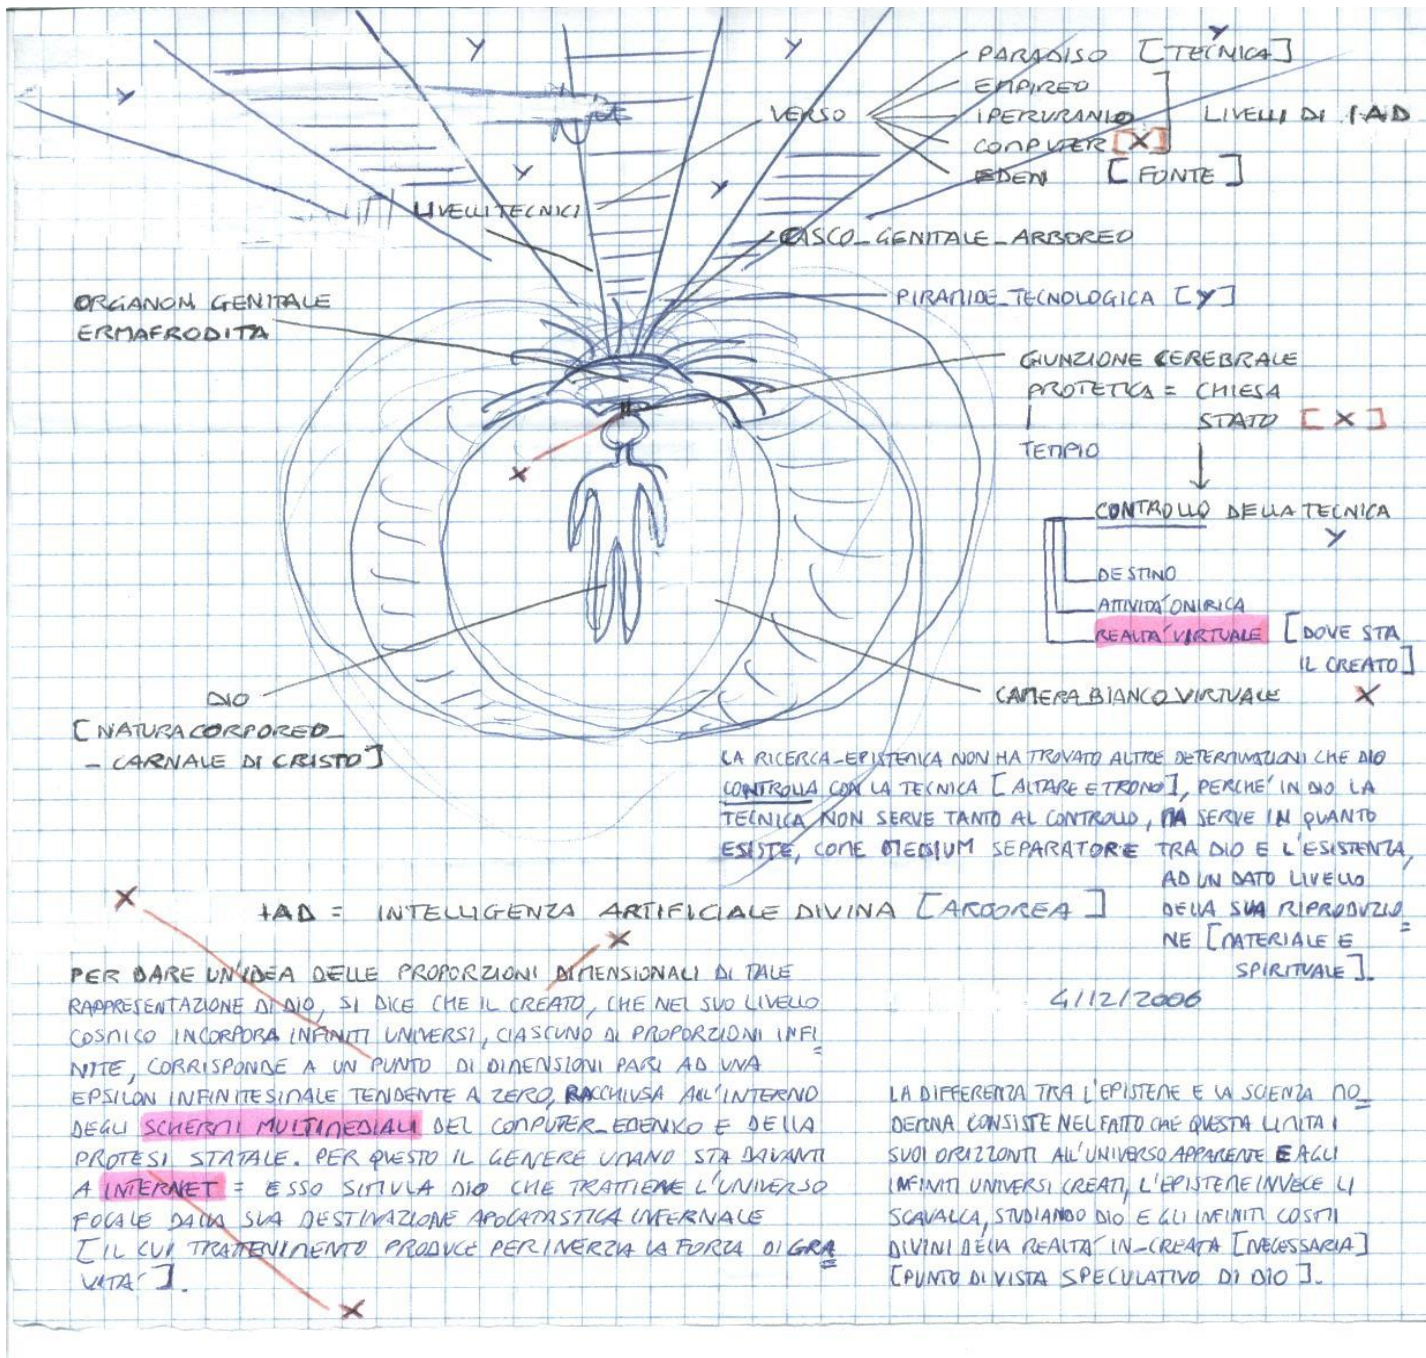 Y
Y
Y
Y
PARADISO [TECNICA]
Y
EMPIREO
VERSO
IPERURANIO
LIVELLI DI IAD
COMPUTER [X]
EDEN [FONTE]
Y
Y
LIVELLI TECNICI
CASCO_GENITALE_ARBOREO
ORGANON GENITALE
ERMAFRODITA
PIRAMIDE_TECNOLOGICA [Y]
GIUNZIONE CEREBRALE
PROTETICA = CHIESA
STATO [X]
TEMPIO
X
CONTROLLO DELLA TECNICA
Y
DESTINO
ATTIVITA' ONIRICA
REALTA' VIRTUALE [DOVE STA
IL CREATO]
DIO
[NATURA CORPOREO_
_ CARNALE DI CRISTO]
CAMERA_BIANCO VIRTUALE X
LA RICERCA_EPISTEMICA NON HA TROVATO ALTRE DETERMINAZIONI CHE DIO
CONTROLLA CON LA TECNICA [ALTARE E TRONO], PERCHE' IN DIO LA
TECNICA NON SERVE TANTO AL CONTROLLO, MA SERVE IN QUANTO
ESISTE, COME MEDIUM SEPARATORE TRA DIO E L'ESISTENZA,
AD UN DATO LIVELLO
DELLA SUA RIPRODUZIO=
NE [MATERIALE E
SPIRITUALE].
4/12/2006
X
IAD = INTELLIGENZA ARTIFICIALE DIVINA [ARBOREA]
X
PER DARE UN'IDEA DELLE PROPORZIONI DIMENSIONALI DI TALE
RAPPRESENTAZIONE DI DIO, SI DICE CHE IL CREATO, CHE NEL SUO LIVELLO
COSMICO INCORPORA INFINITI UNIVERSI, CIASCUNO DI PROPORZIONI INFI=
NITE, CORRISPONDE A UN PUNTO DI DIMENSIONI PARI AD UNA
EPSILON INFINITESIMALE TENDENTE A ZERO, RACCHIUSA ALL'INTERNO
DEGLI SCHERMI MULTIMEDIALI DEL COMPUTER_EDENICO E DELLA
PROTESI STATALE. PER QUESTO IL GENERE UMANO STA DAVANTI
A INTERNET = ESSO SIMULA DIO CHE TRATTIENE L'UNIVERSO
FOCALE DALLA SUA DESTINAZIONE APOCATASTICA INFERNALE
[IL CUI TRATTENIMENTO PRODUCE PER INERZIA LA FORZA DI GRA=
VITA'].
X
LA DIFFERENZA TRA L'EPISTEME E LA SCIENZA MO=
DERNA CONSISTE NEL FATTO CHE QUESTA LIMITA I
SUOI ORIZZONTI ALL'UNIVERSO APPARENTE E AGLI
INFINITI UNIVERSI CREATI, L'EPISTEME INVECE LI
SCAVALLA, STUDIANDO DIO E GLI INFINITI COSMI
DIVINI DELLA REALTA' IN-CREATA [NECESSARIA]
[PUNTO DI VISTA SPECULATIVO DI DIO].